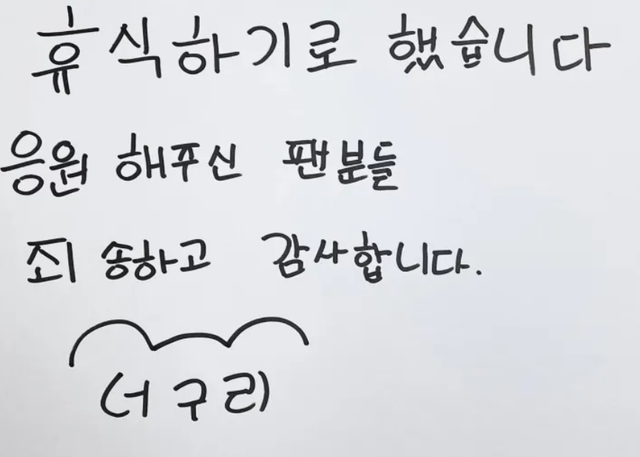 휴식하기로 했습니다
응원 해주신 팬분들
죄송하고 감사합니다.
너구리